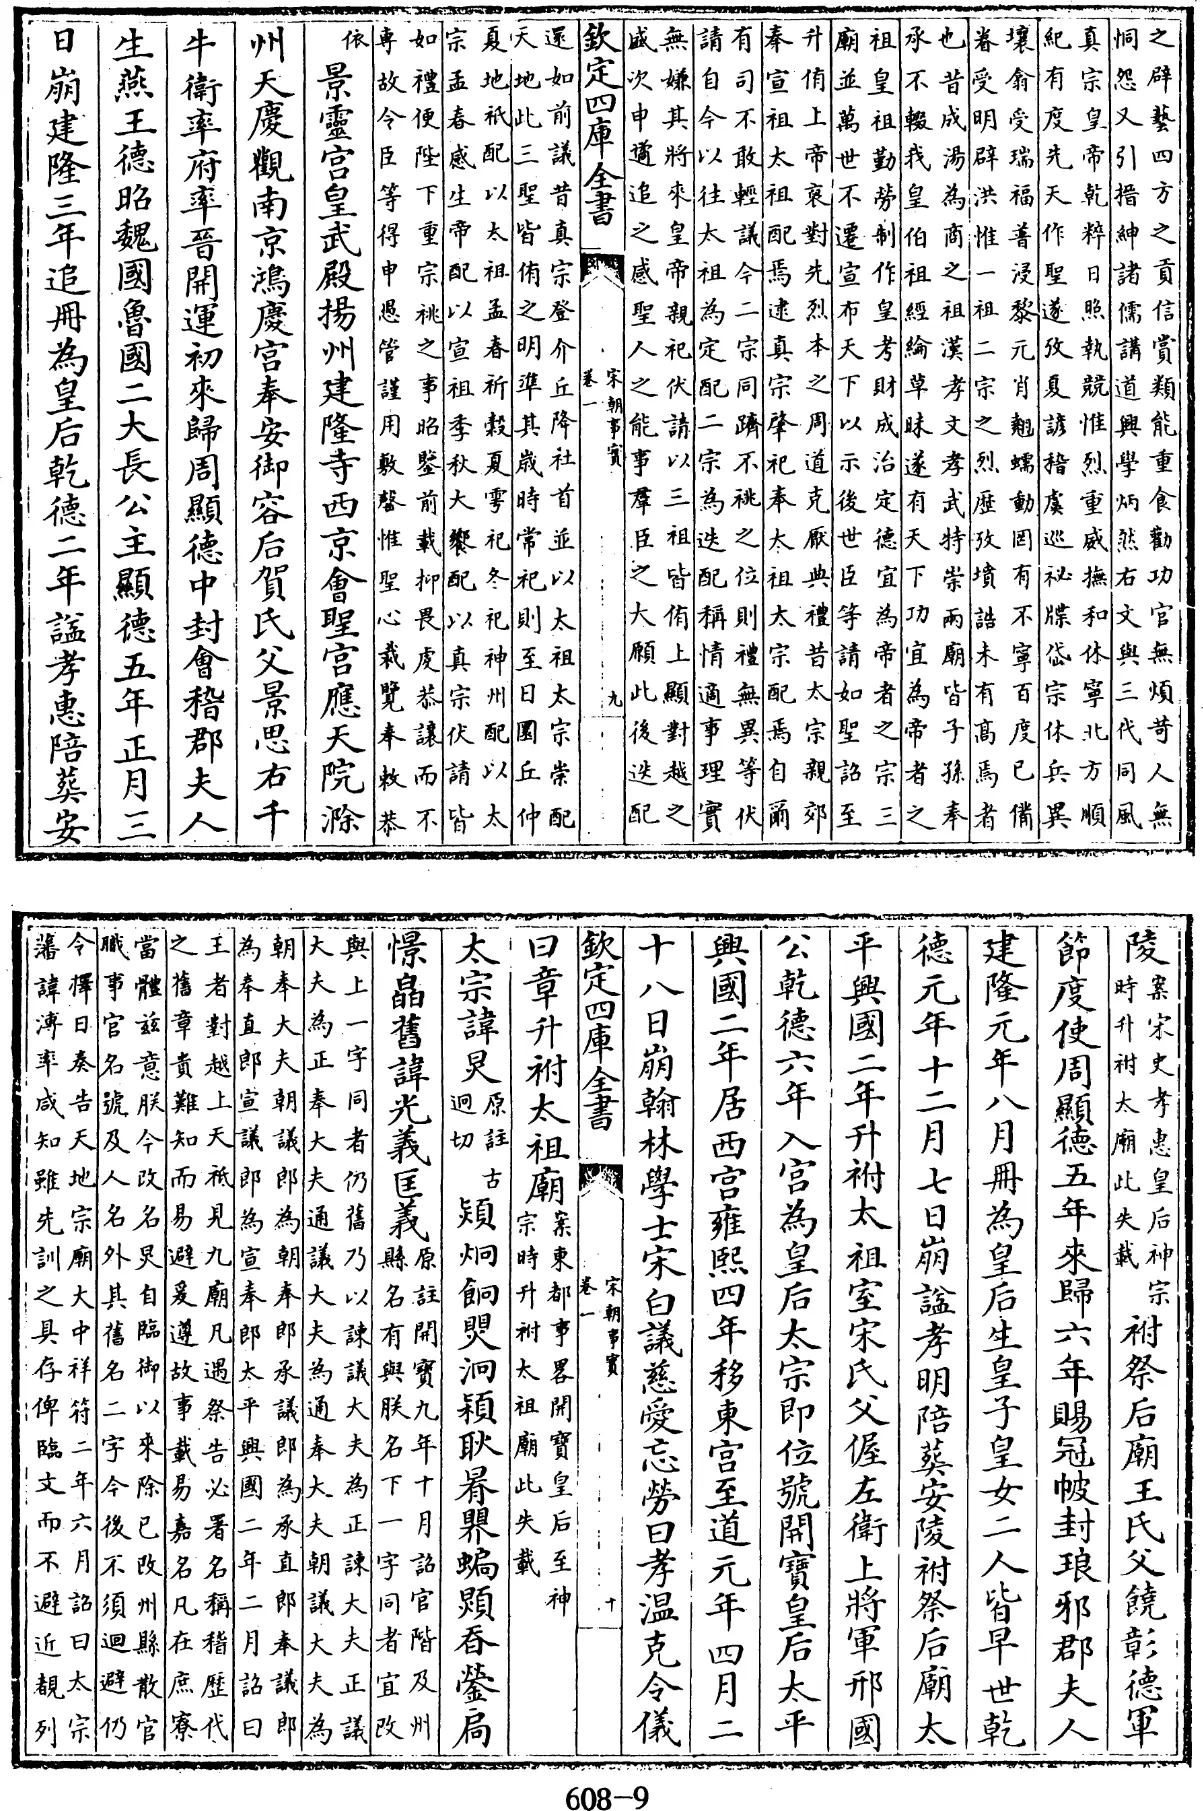 之辟藝四方之貢信賞類能重食勸功官無煩苛人無
恫怨又引搢紳諸儒講道興學炳然右文與三代同風
真宗皇帝乾粹日照執競惟烈重威撫和休寧北方順
紀有度先天作聖遂攷夏諺稽虞巡祕牒岱宗休兵異
壤翕受瑞福普浸黎元肖翹蠕動罔有不寧百度已備
眷受明辟洪惟一祖二宗之烈歷攷墳誥未有高焉者
也昔成湯為商之祖漢孝文孝武特崇兩廟皆子孫奉
承不輟我皇伯祖經綸草昧遂有天下功宜為帝者之
祖皇祖勤勞制作皇考財成治定德宜為帝者之宗三
廟並萬世不遷宣布天下以示後世臣等請如聖詔至
升侑上帝裒對先烈本之周道克厭典禮昔太宗親郊
奉宣祖太祖配焉逮真宗肇祀奉太祖太宗配焉自爾
有司不敢輕議今二宗同躋不祧之位則禮無異等伏
請自今以往太祖為定配二宗為迭配稱情適事理實
無嫌其將來皇帝親祀伏請以三祖皆侑上顯對越之
盛次申遹追之感聖人之能事羣臣之大願此後迭配
欽定四庫全書
宋朝事實
卷一
九
還如前議昔真宗登介丘降社首並以太祖太宗崇配
天地此三聖皆侑之明準其歲時常祀則至日圜丘仲
夏地祇配以太祖孟春祈穀夏雩祀冬祀神州配以太
宗孟春感生帝配以宣祖季秋大饗配以真宗伏請皆
如禮便陛下重宗祧之事昭鑒前載抑畏虔恭讓而不
專故令臣等得申愚管謹用敷罄惟聖心裁覽奉敕恭
依
景靈宮皇武殿揚州建隆寺西京會聖宮應天院滁
州天慶觀南京鴻慶宮奉安御容后賀氏父景思右千
牛衛率府率晉開運初來歸周顯德中封會稽郡夫人
生燕王德昭魏國魯國二大長公主顯德五年正月三
日崩建隆三年追冊為皇后乾德二年謚孝惠陪葬安
陵
案宋史孝惠皇后神宗
時升祔太廟此失載
祔祭后廟王氏父饒彰德軍
節度使周顯德五年來歸六年賜冠帔封琅邪郡夫人
建隆元年八月冊為皇后生皇子皇女二人皆早世乾
德元年十二月七日崩謚孝明陪葬安陵祔祭后廟太
平興國二年升祔太祖室宋氏父偓左衛上將軍邢國
公乾德六年入宮為皇后太宗即位號開寶皇后太平
興國二年居西宮雍熙四年移東宮至道元年四月二
十八日崩翰林學士宋白議慈愛忘勞曰孝溫克令儀
欽定四庫全書
宋朝事實
卷一
十
曰章升祔太祖廟
案東都事畧開寶皇后至神
宗時升祔太祖廟此失載
太宗諱炅
原註古
迥切
熲炯餉炚泂穎耿昪界蝙顋吞鎣扃
憬晶舊諱光義匡義
原註開寶九年十月詔官階及州
縣名有與朕名下一字同者宜改
與上一字同者仍舊乃以諫議大夫為正諫大夫正議
大夫為正奉大夫通議大夫為通奉大夫朝議大夫為
朝奉大夫朝議郎為朝奉郎承議郎為承直郎奉議郎
為奉直郎宣議郎為宣奉郎太平興國二年二月詔曰
王者對越上天祇見九廟凡遇祭告必署名稱稽歷代
之舊章貴難知而易避爰遵故事載易嘉名凡在庶寮
當體茲意朕今改名炅自臨御以來除已改州縣散官
職事官名號及人名外其舊名二字今後不須迴避仍
令擇日奏告天地宗廟大中祥符二年六月詔曰太宗
藩諱溥率咸知雖先訓之具存俾臨文而不避近覩列
608-9